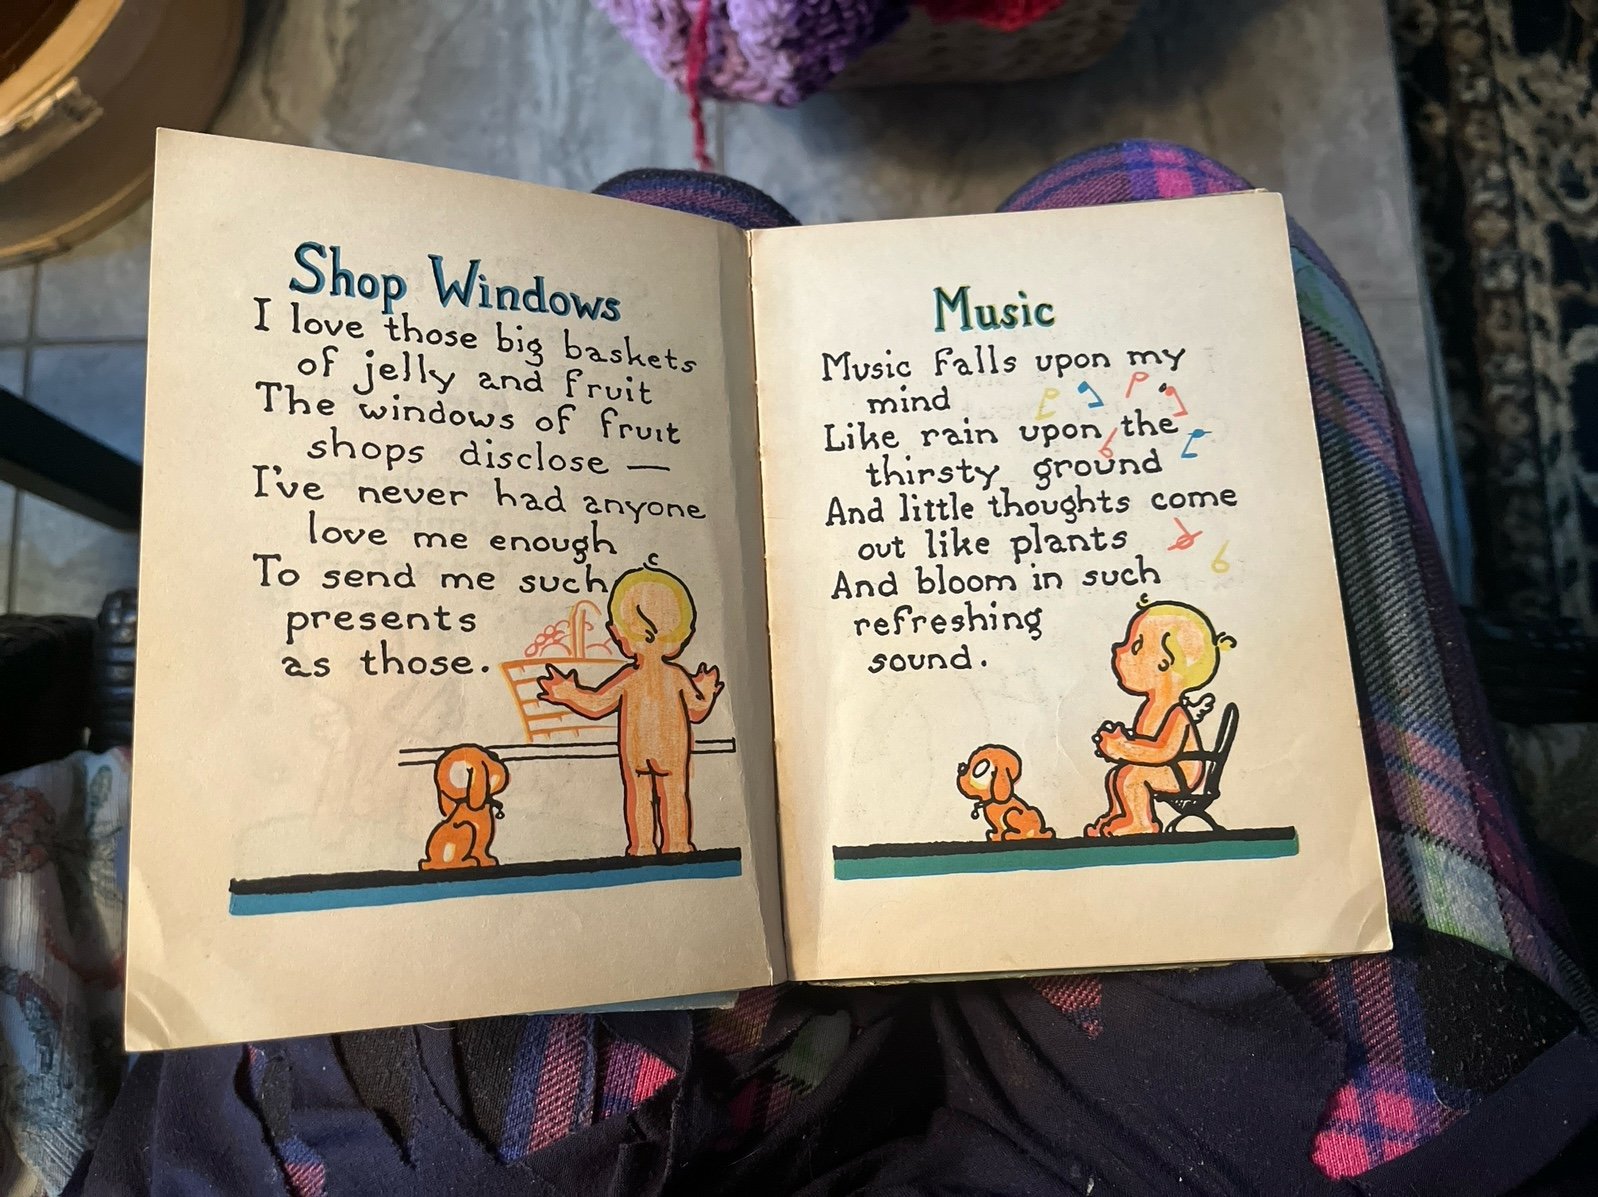 Shop Windows
I love those big baskets
of jelly and fruit
The windows of fruit
shops disclose —
I've never had anyone
love me enough
To send me such
presents
as those.
Music
Music falls upon my
mind
Like rain upon the
thirsty ground
And little thoughts come
out like plants
And bloom in such
refreshing
sound.